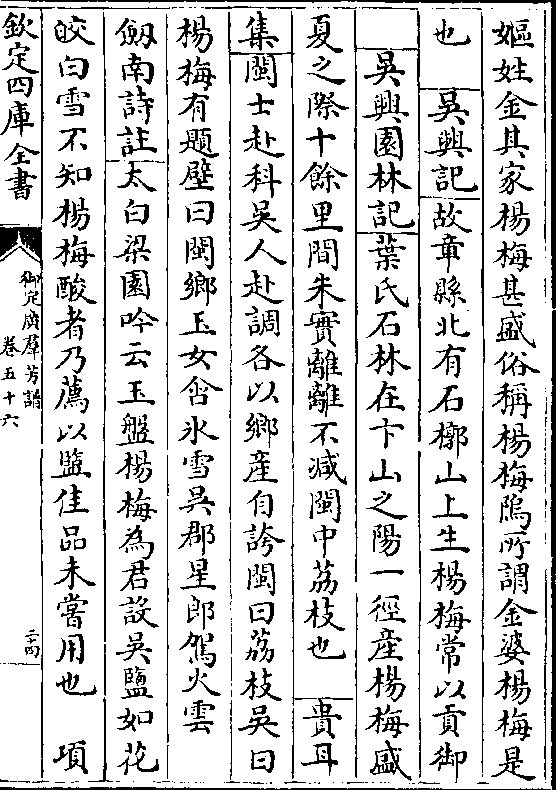 嫗姓金其家楊梅甚盛俗稱楊梅隝所謂金婆楊梅是
也　吳興記故章縣北有石槨山上生楊梅常以貢御
吳興園林記葉氏石林在卞山之陽一徑産楊梅盛
夏之際十餘里間朱實離離不減閩中荔枝也　貴耳
集閩士赴科吳人赴調各以鄉産自誇閩曰荔枝吳曰
楊梅有題壁曰閩鄉玉女含氷雪吳郡星郎駕火雲
劔南詩註太白梁園吟云玉盤楊梅為君設吳鹽如花
皎白雪不知楊梅酸者乃薦以鹽佳品未嘗用也　項
欽定四庫全書
御定廣羣芳譜
卷五十六
二十四